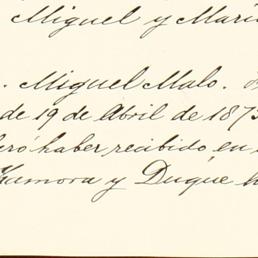 Miguel y Marí
. Miguel Malo.
de 19 de Abril de 1873
eró haber recibido en
Zamora y Duque